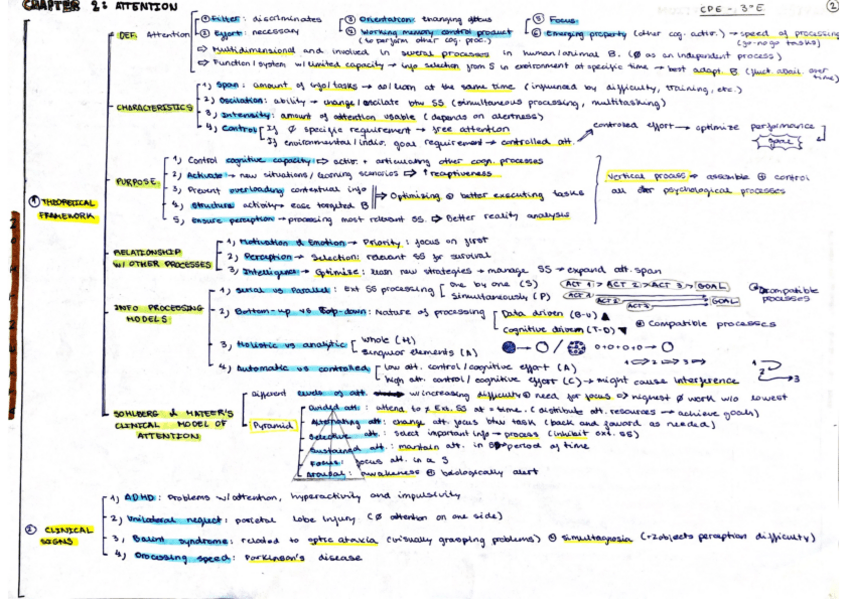 CHAPTER 2: ATTENTION
CPE - 3ºE
2
① THEORETICAL FRAMEWORK
DEF. Attention
① Filter: discriminates
③ Orientation: changing focus
⑤ Focus
② Effort: necessary
④ Working memory control product (to perform other cog. proc.)
⑥ Emerging property (other cog. activ.) → speed of processing (go-no go tasks)
⇨ Multidimensional and involved in several processes in human/animal B. (Ø as an independent process)
⇨ Function/system w/ limited capacity → info selection from S in environment at specific time → best adapt. B (fluct. avail. over time)
CHARACTERISTICS
1) Span: amount of info/tasks → do/learn at the same time (influenced by difficulty, training, etc.)
2) Oscilation: ability → change/oscilate btw SS (simultaneous processing, multitasking)
3) Intensity: amount of attention usable (depends on alertness)
4) Control
If Ø specific requirement → free attention
If environmental/indiv. goal requirement → controlled att.
controlled effort → optimize performance
goal
PURPOSE
1) Control cognitive capacity ⇨ activ. + articulating other cogn. processes
2) Activate → new situations/learning scenarios ⇨ ↑ reaptiveness
3) Prevent overloading contextual info
4) Structure activity → ease targeted B
⇨ Optimizing ⊕ better executing tasks
5) Ensure perception → processing most relevant SS. ⇨ Better reality analysis
Vertical process → assemble ⊕ control all psychological processes
RELATIONSHIP W/ OTHER PROCESSES
1) Motivation & Emotion → Priority: focus on first
2) Perception → Selection: relevant SS for survival
3) Intelligence → Optimise: learn new strategies → manage SS → expand att. span
INFO PROCESSING MODELS
1) Serial vs Parallel: Ext SS processing
one by one (S)
simultaneously (P)
ACT 1 > ACT 2 > ACT 3 > GOAL
ACT 1
ACT 2
ACT 3
GOAL
compatible processes
2) Bottom-up vs Top-down: Nature of processing
Data driven (B-U) ▲
Cognitive driven (T-D) ▼
⊕ Compatible processes
3) Holistic vs analytic
whole (H)
singular elements (A)
4) Automatic vs controlled
low att. control/cognitive effort (A)
high att. control/cognitive effort (C) → might cause interference
SOHLBERG & MATEER'S CLINICAL MODEL OF ATTENTION
different levels of att. w/increasing difficulty ⊕ need for focus ⇨ highest Ø work w/o lowest
Pyramid
Divided att.: attend to x Ext. SS at = time. (distribute att. resources → achieve goals)
Alternating att: change att. focus btw task (back and foward as needed)
Selective att.: select important info → process (inhibit ext. SS)
Sustained att.: maintain att. in S → period of time
Focus: focus att. in a S
Arousal: awakeness ⊕ biologically alert
② CLINICAL SIGNS
1) ADHD: Problems w/attention, hyperactivity and impulsivity
2) Unilateral neglect: parietal lobe injury (Ø attention on one side)
3) Balint syndrome: related to optic ataxia (visually grasping problems) ⊕ simultagnosia (+2objects perception difficulty)
4) Processing speed: Parkinson's disease